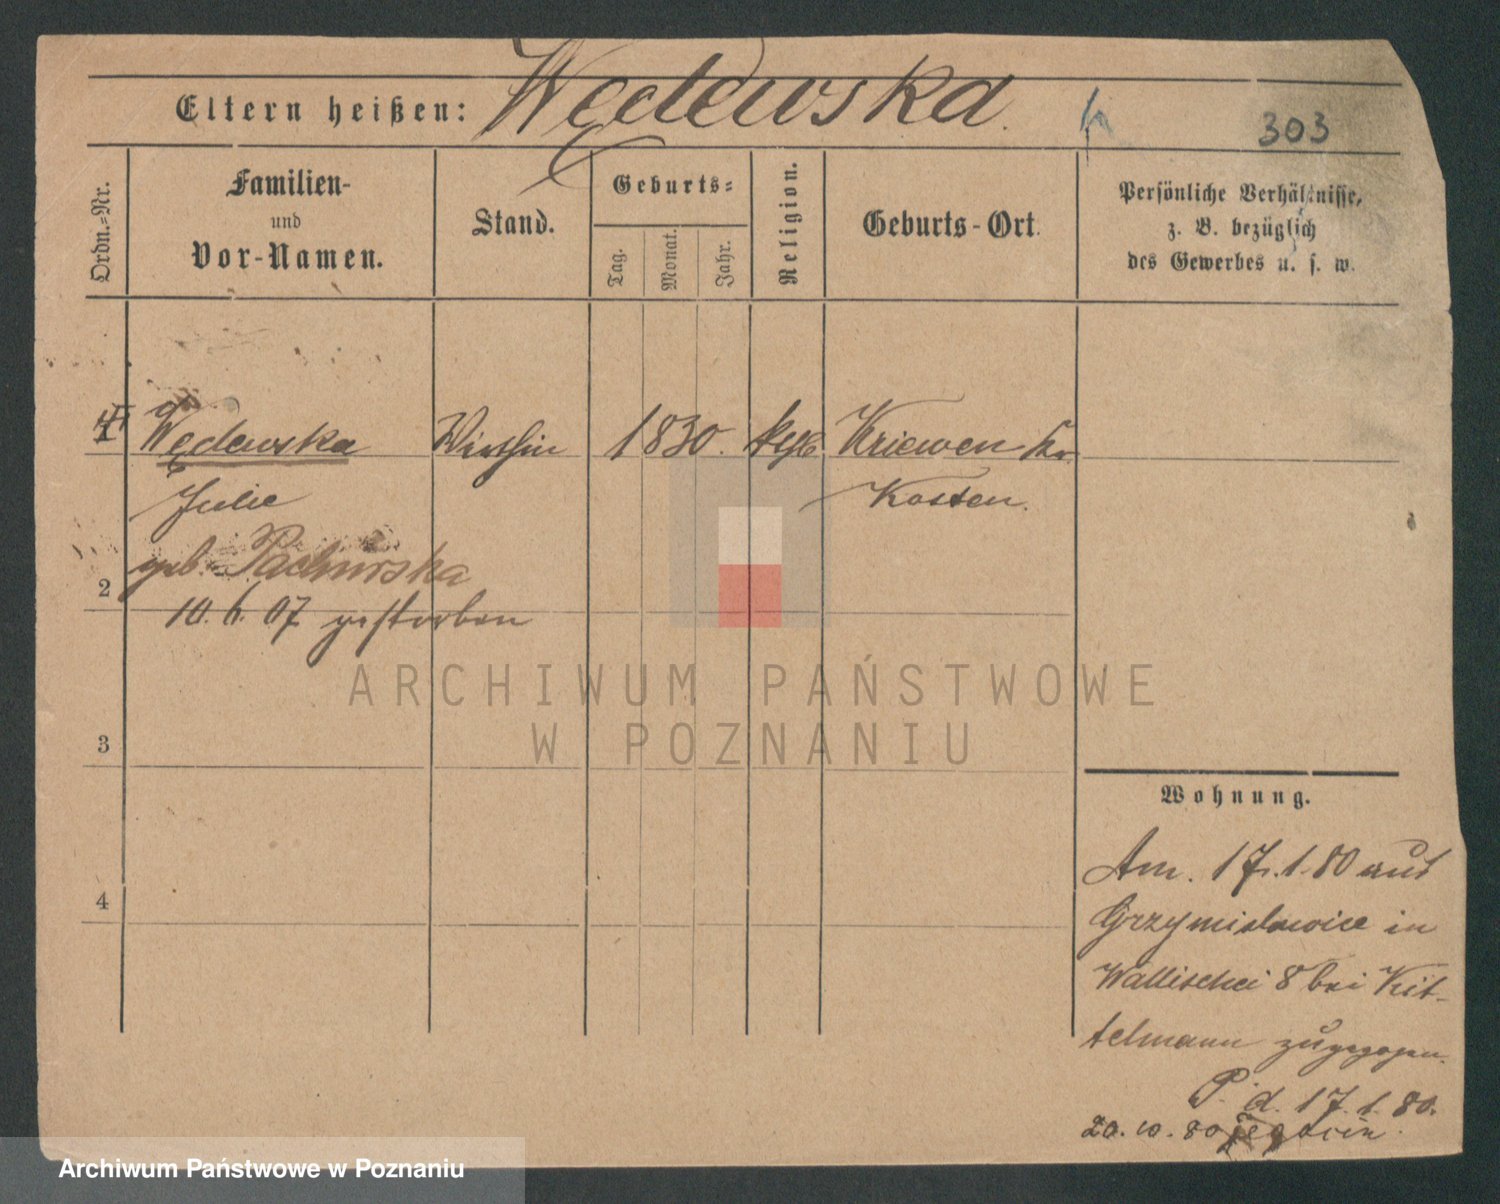 Eltern heißen: Wędewska.
303
Ordn.-Nr.
Familien-
und
Vor-Namen.
Stand.
Geburts-
Tag.
Monat.
Jahr.
Religion.
Geburts-Ort.
Persönliche Verhältnisse,
z. B. bezüglich
des Gewerbes u. s. w.
1 Wędewska Wirthin 1830. kath Kriewen Kr
Julie Kosten.
geb.
2
10. 6. 07 gestorben
3
4
ARCHIWUM PAŃSTWOWE
W POZNANIU
Wohnung.
Am. 17.1.80 aus
Grzymislawice in
Wallischei 8 bei Kit-
telmann zugezogen.
P. d. 17.1.80.
20. 10. 80
Archiwum Państwowe w Poznaniu